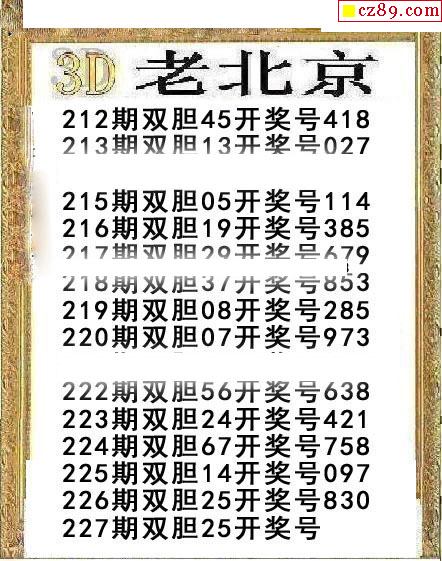 cz89.com
3D 老北京
212期双胆45开奖号418
213期双胆13开奖号027
215期双胆05开奖号114
216期双胆19开奖号385
217期双胆29开奖号679
218期双胆37开奖号853
219期双胆08开奖号285
220期双胆07开奖号973
222期双胆56开奖号638
223期双胆24开奖号421
224期双胆67开奖号758
225期双胆14开奖号097
226期双胆25开奖号830
227期双胆25开奖号